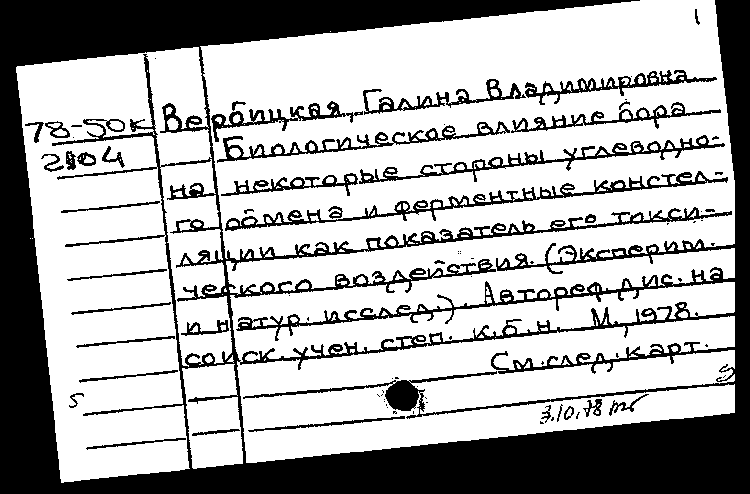 1
78-50к Вербицкая, Галина Владимировна
2104 Биологическое влияние бора
на некоторые стороны углеводно-
го обмена и ферментные констел-
ляции как показатель его токси-
ческого воздействия. (Эксперим.
и натур. исслед.). Автореф. дис. на
соиск. учен. степ. к.б.н. М., 1978.
См. след. карт.
5
3.10.78